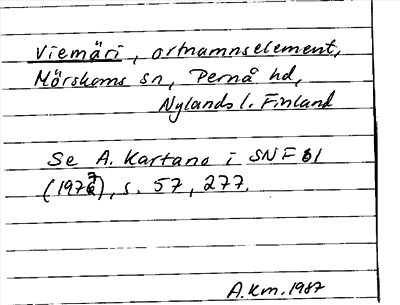 Viemäri, ortnamnselement,
Mörskoms sn, Pernå hd,
Nylands l. Finland
Se A. Kartano i SNF 61
(1977), s. 57, 277.
A.Km. 1987